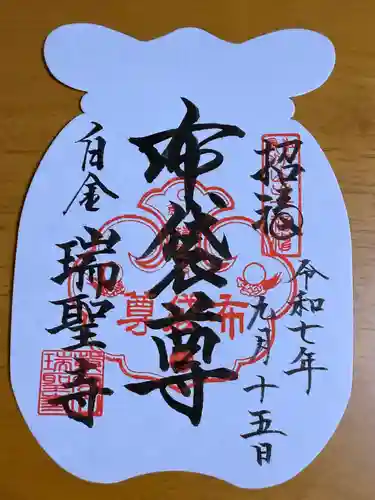 招福
令和七年
九月十五日
布袋尊
布袋尊
白金
瑞聖寺